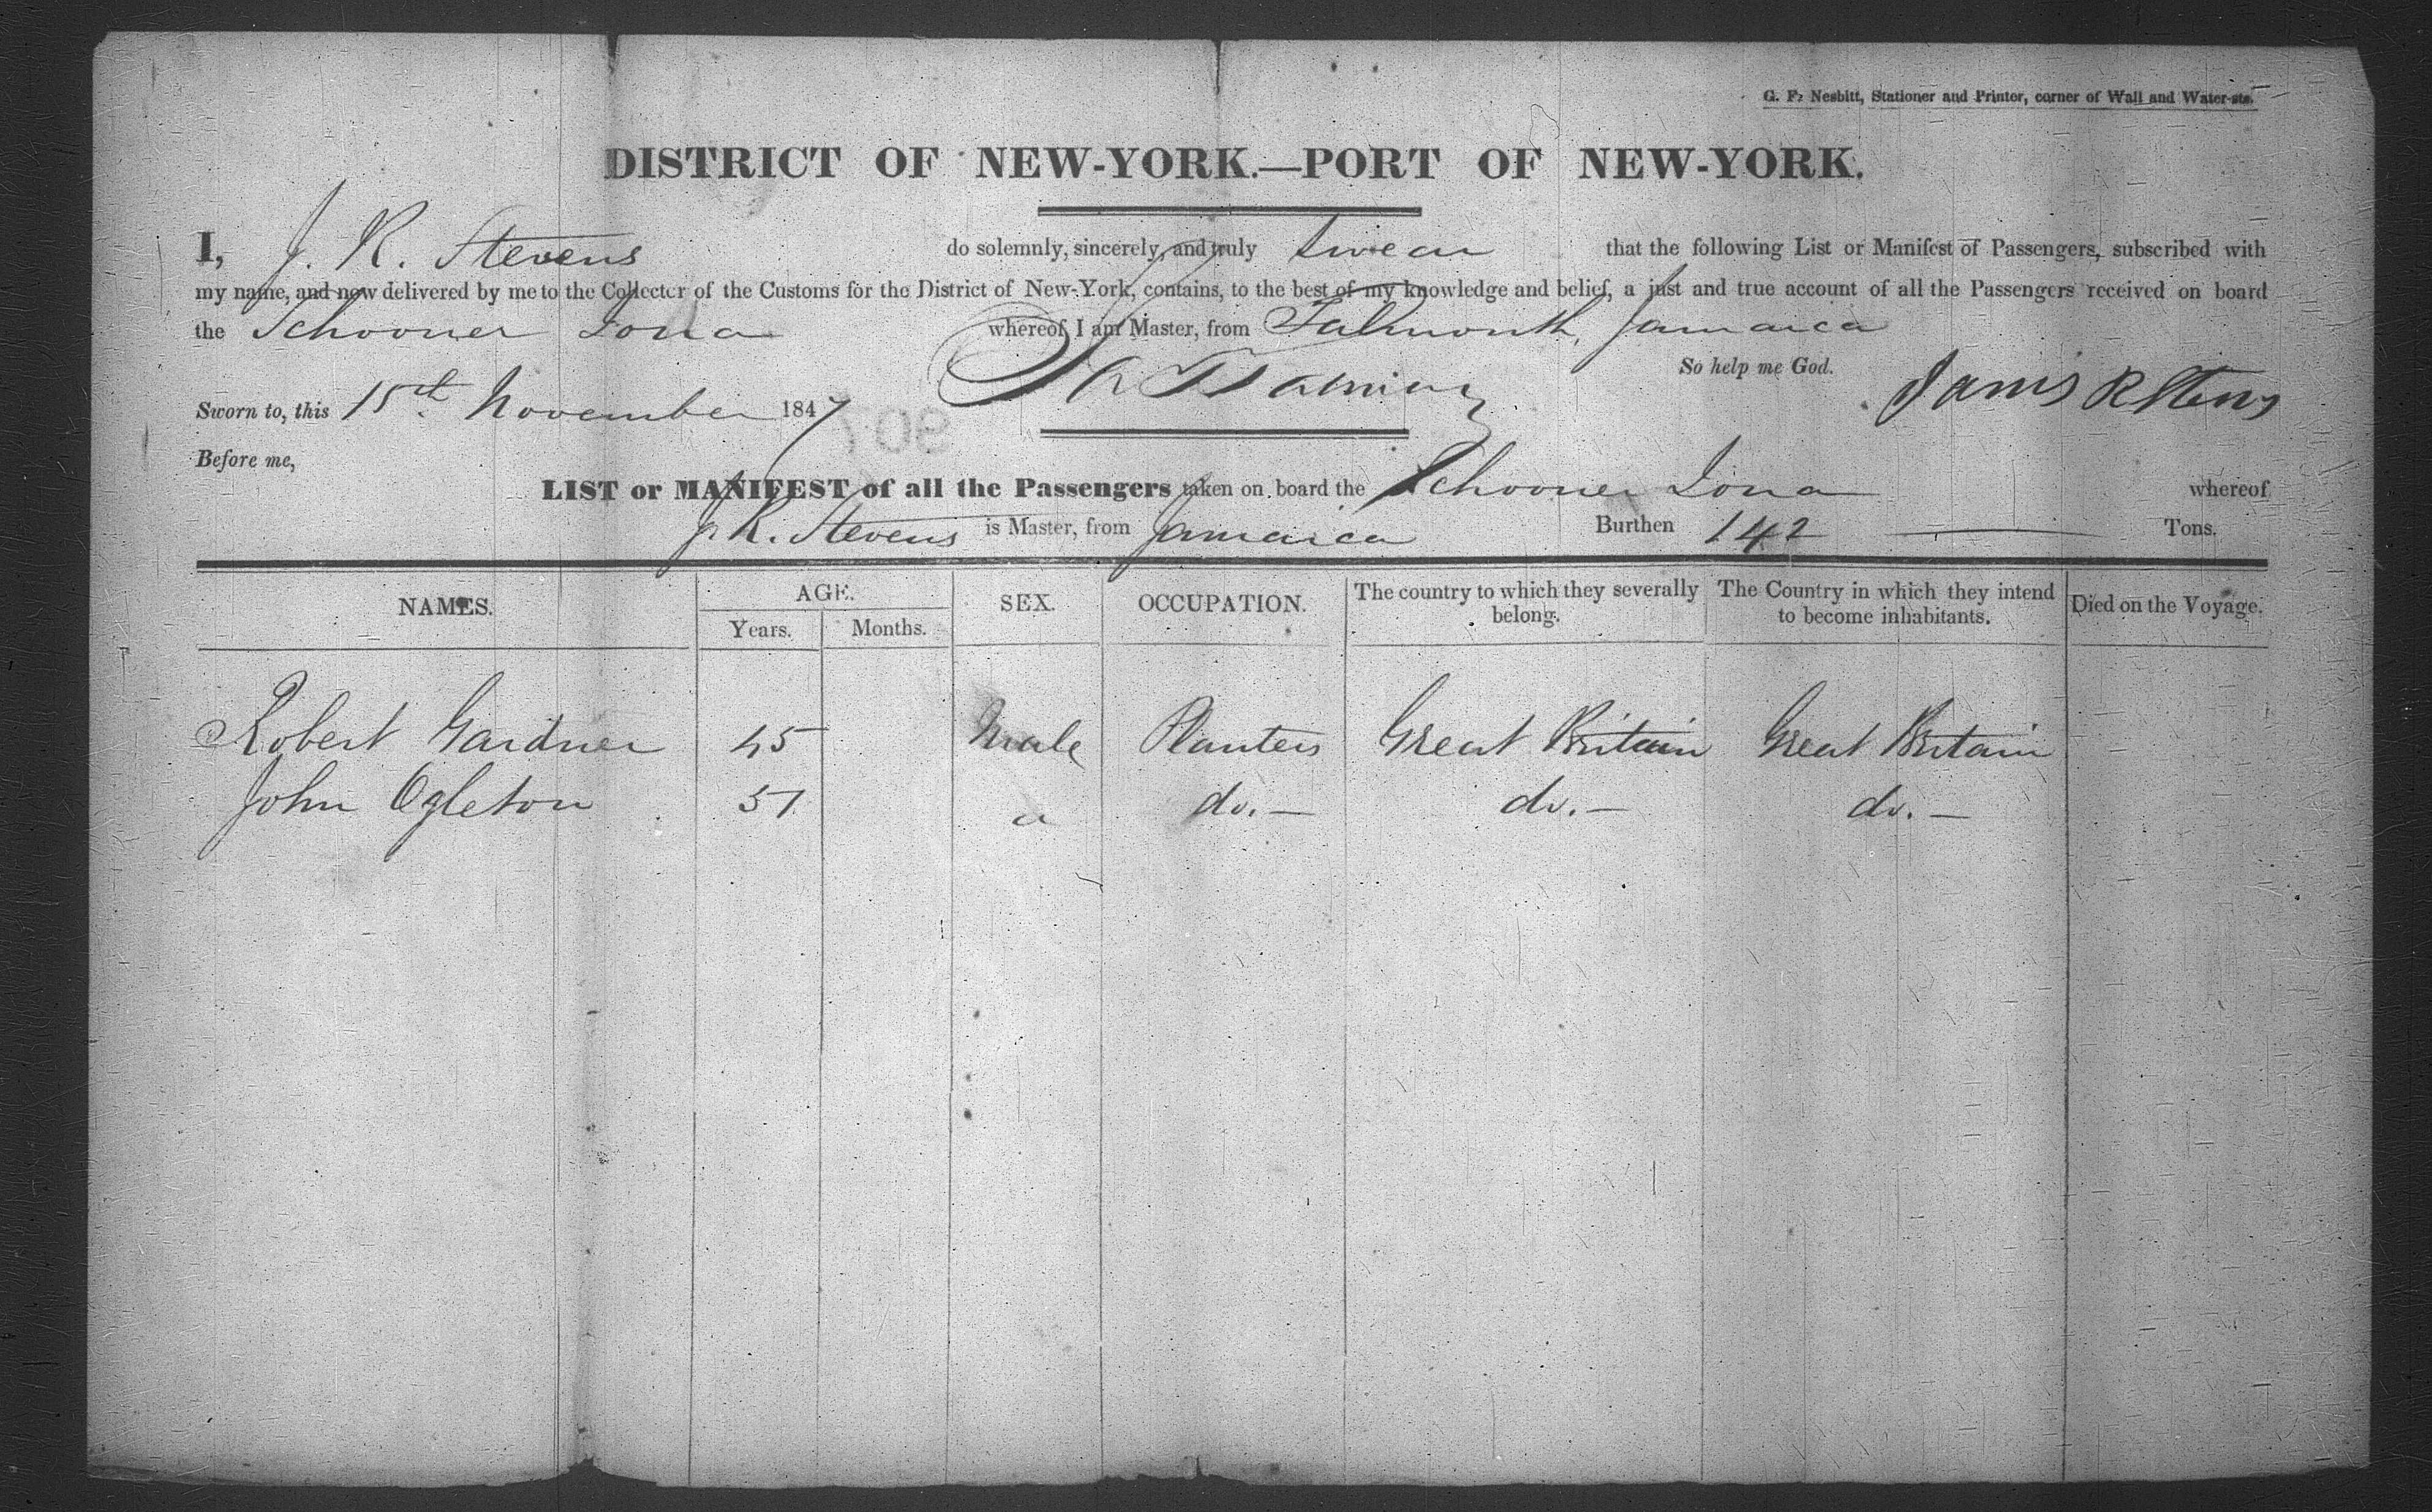 G. F. Nesbitt, Stationer and Printer, corner of Wall and Water-sts.
DISTRICT OF NEW-YORK.—PORT OF NEW-YORK.
I, J. R. Stevens do solemnly, sincerely, and truly swear that the following List or Manifest of Passengers, subscribed with
my name, and now delivered by me to the Collector of the Customs for the District of New-York, contains, to the best of my knowledge and belief, a just and true account of all the Passengers received on board
the Schooner Iona whereof I am Master, from Falmouth, Jamaica
So help me God.
Sworn to, this 15th November 1847
Before me,
LIST or MANIFEST of all the Passengers taken on board the Schooner Iona whereof
J. R. Stevens is Master, from Jamaica Burthen 142 Tons.
NAMES. AGE. SEX. OCCUPATION. The country to which they severally belong. The Country in which they intend to become inhabitants. Died on the Voyage.
Years. Months.
Robert Gardner 45 Male Planters Great Britain Great Britain
John Ogleton 51 do. — do. — do. —